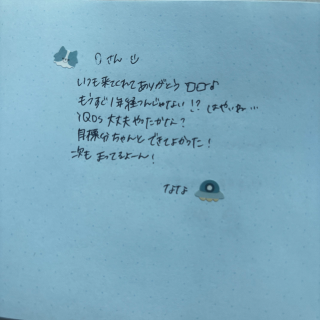 りさん
いつも来てくれてありがとう ロロ♪
もうすぐ1年経つんじゃない!? はやいね…
IQOS 大丈夫やったかな?
目標分ちゃんとできてよかった!
次も まってるよーん!
なな